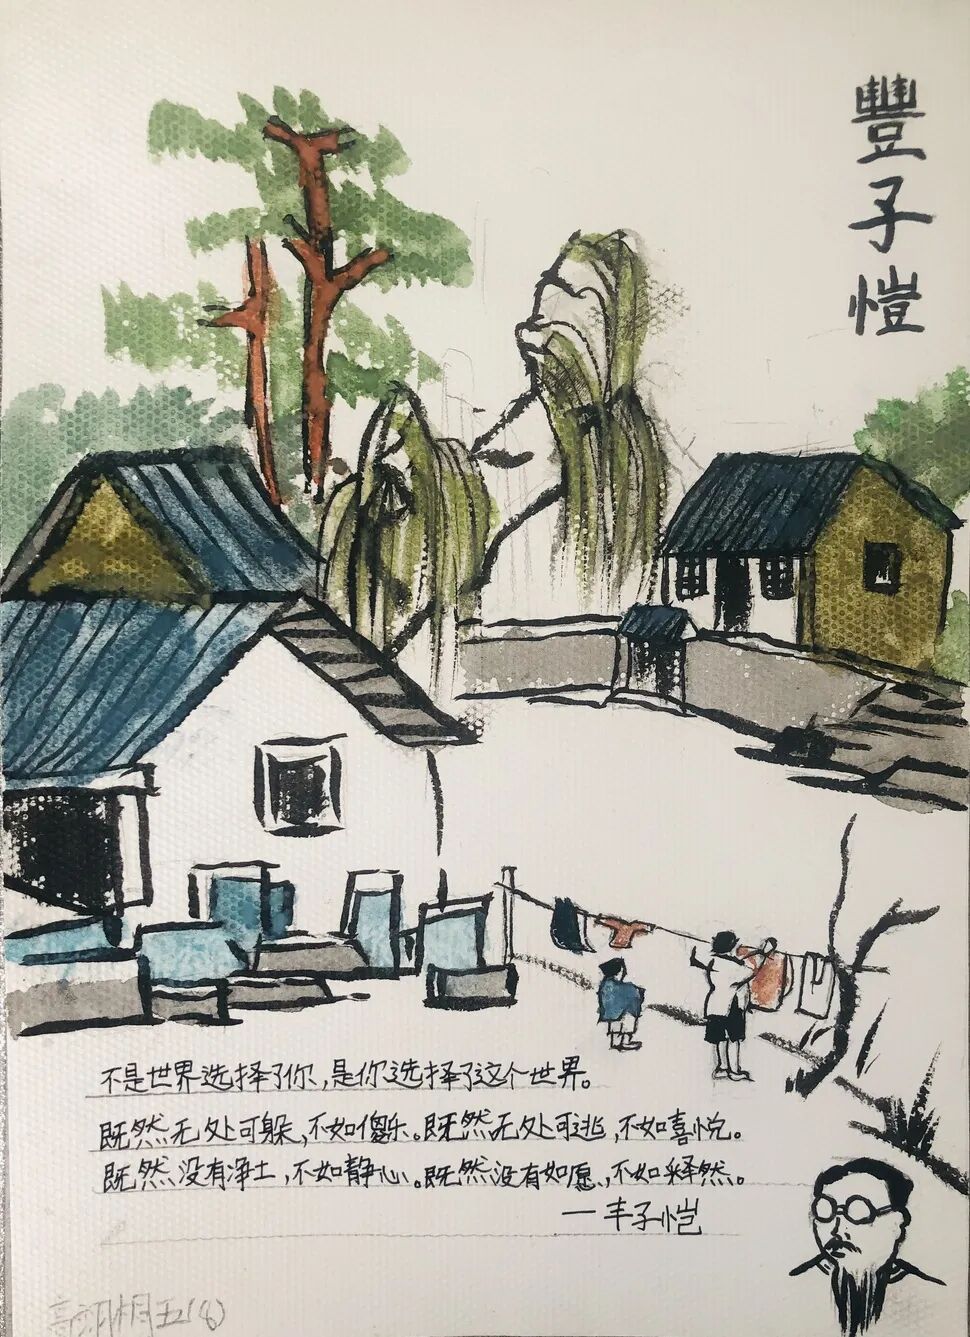 豐子愷
不是世界选择了你，是你选择了这个世界。
既然无处可躲，不如傻乐。既然无处可逃，不如喜悦。
既然没有净土，不如静心。既然没有如愿，不如释然。
—丰子恺
五(6)